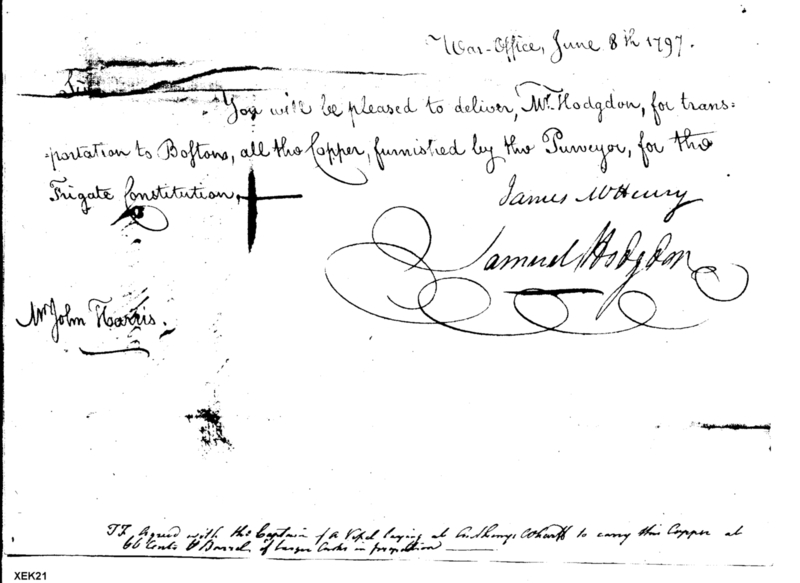 War-Office, June 8th 1797.
Sir
You will be pleased to deliver, Mr. Hodgdon, for trans=
=portation to Boston, all the Copper, furnished by the Purveyor, for the
Frigate Constitution.
James McHenry
Samuel Hodgdon
Mr John Harris.
Agreed with the Captain of a Vessel laying at Anthonys Wharff to carry this Copper at
66 Cents Barrel, & larger Casks in proportion
XEK21